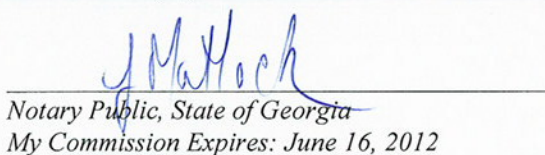 Y Matlock
Notary Public, State of Georgia
My Commission Expires: June 16, 2012